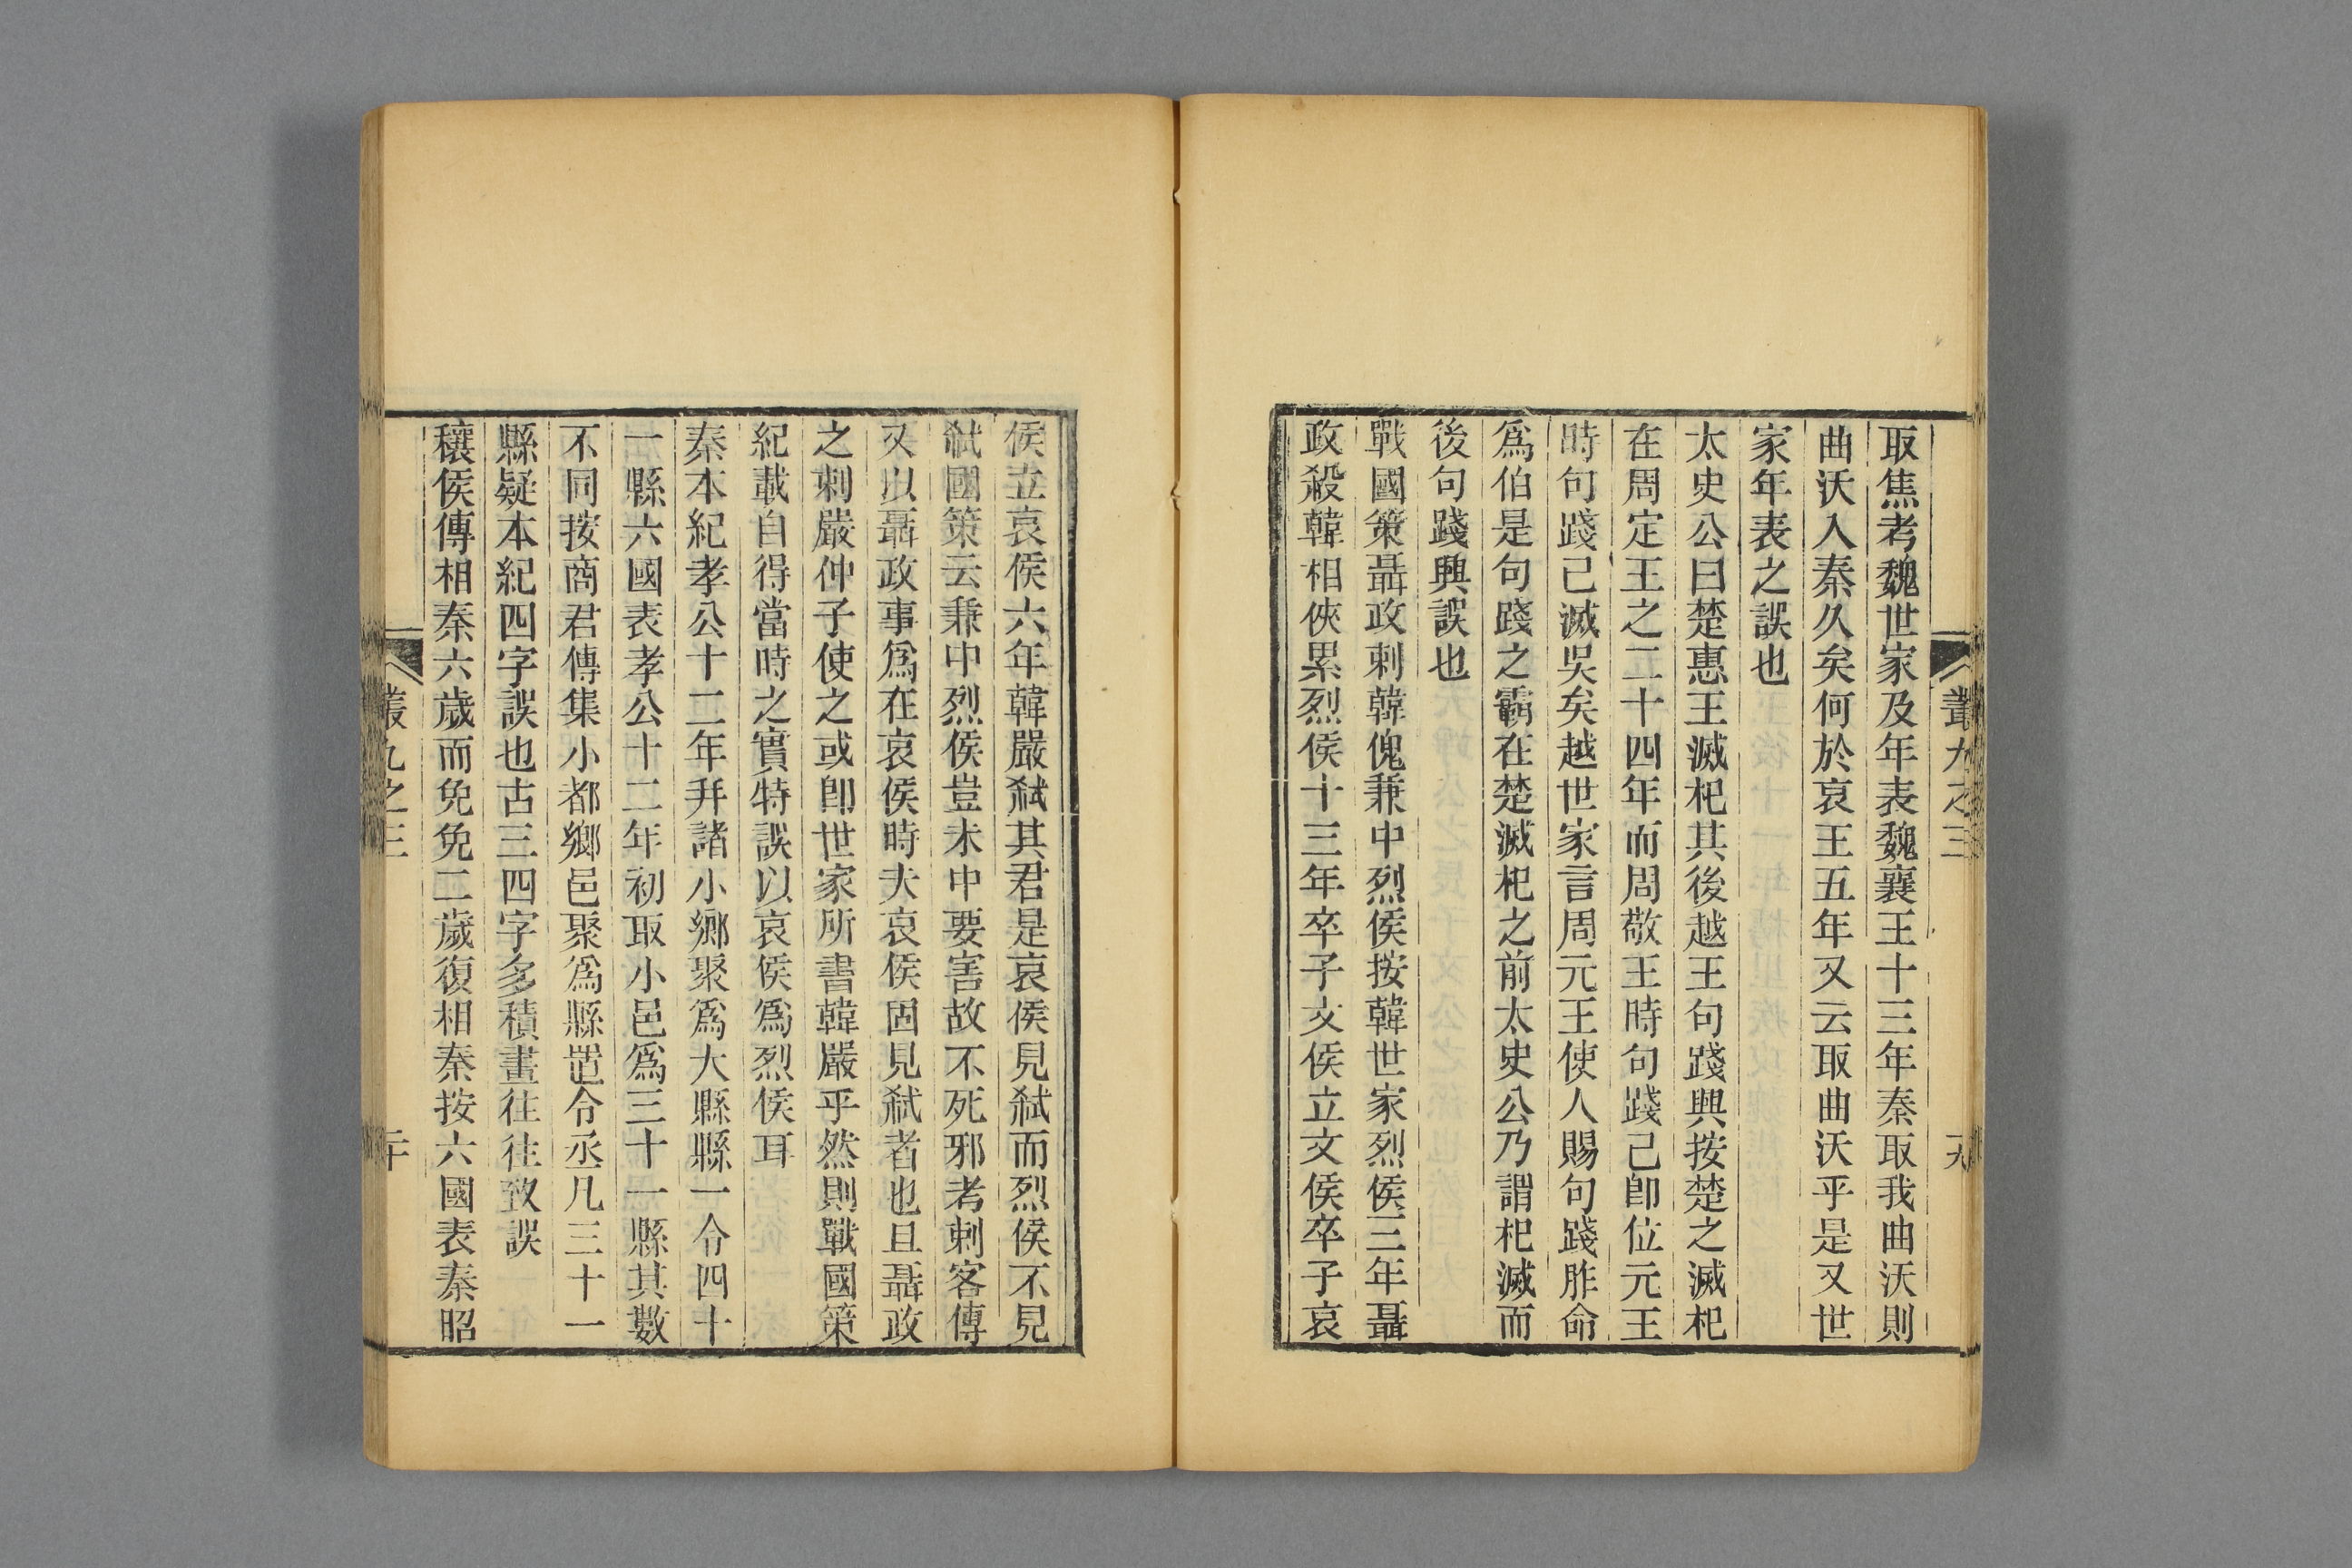 取焦考魏世家及年表魏襄王十三年秦取我曲沃則
曲沃入秦久矣何於哀王五年又云取曲沃乎是又世
家年表之誤也
太史公曰楚惠王滅杞其後越王句踐興按楚之滅杞
在周定王之二十四年而周敬王時句踐已卽位元王
時句踐已滅吳矣越世家言周元王使人賜句踐胙命
爲伯是句踐之霸在楚滅杞之前太史公乃謂杞滅而
後句踐興誤也
戰國策聶政刺韓傀兼中烈侯按韓世家烈侯三年聶
政殺韓相俠累烈侯十三年卒子文侯立文侯卒子哀
侯立哀侯六年韓嚴弑其君是哀侯見弑而烈侯不見
弑國策云兼中烈侯豈未中要害故不死邪考刺客傳
又以聶政事爲在哀侯時夫哀侯固見弑者也且聶政
之刺嚴仲子使之或卽世家所書韓嚴乎然則戰國策
紀載自得當時之實特誤以哀侯爲烈侯耳
秦本紀孝公十二年幷諸小鄉聚爲大縣縣一令四十
一縣六國表孝公十二年初取小邑爲三十一縣其數
不同按商君傳集小都鄉邑聚爲縣置令丞凡三十一
縣疑本紀四字誤也古三四字多積畫往往致誤
穰侯傳相秦六歲而免免二歲復相秦按六國表秦昭
叢九之三
二十